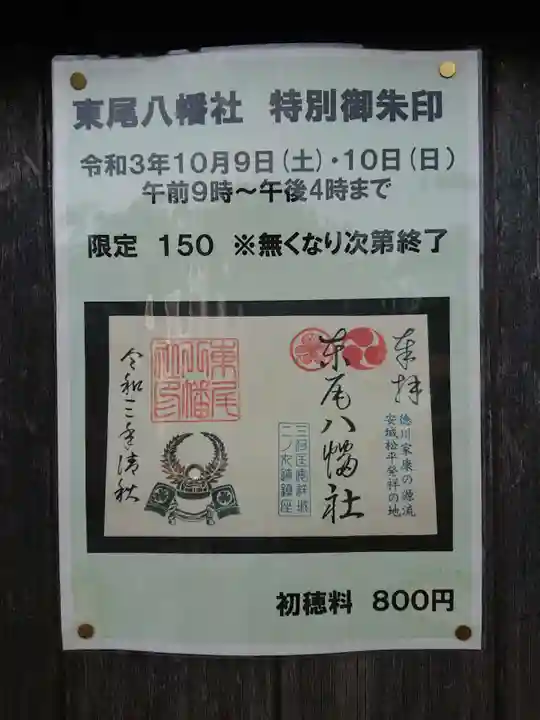 東尾八幡社 特別御朱印
令和3年10月9日(土)・10日(日)
午前9時～午後4時まで
限定 150 ※無くなり次第終了
奉拝
徳川家康の源流
安城松平発祥の地
東尾八幡社
三河国安祥城
二ノ丸跡鎮座
東尾
八幡
社印
令和三年清秋
初穂料 800円